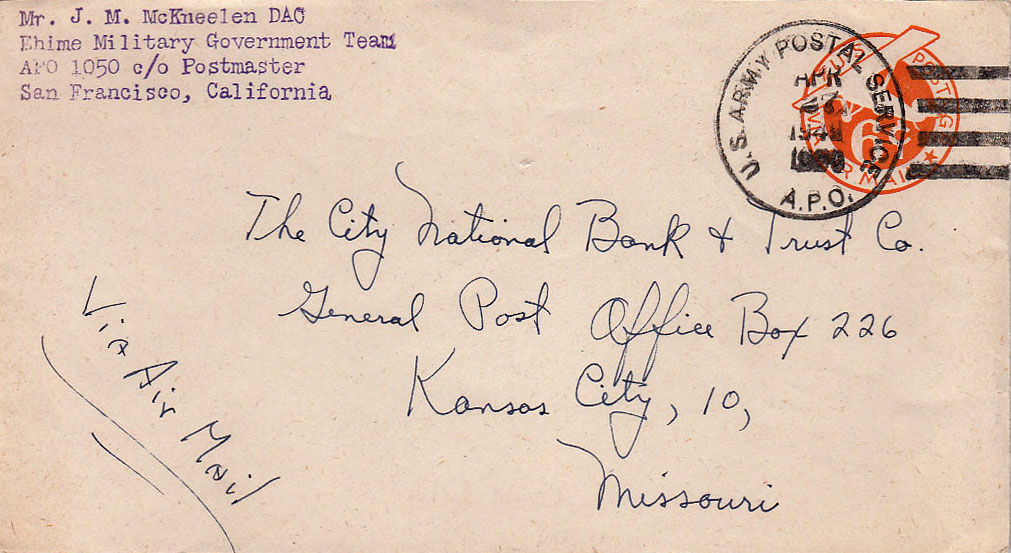 Mr. J. M. McKneelen DAC
Ehime Military Government Team
APO 1050 c/o Postmaster
San Francisco, California
U.S. ARMY POSTAL SERVICE
APR
A.P.O.
U.S. POSTAGE
VIA AIR MAIL
6
The City National Bank & Trust Co.
General Post Office Box 226
Kansas City, 10,
Missouri
Via Air Mail